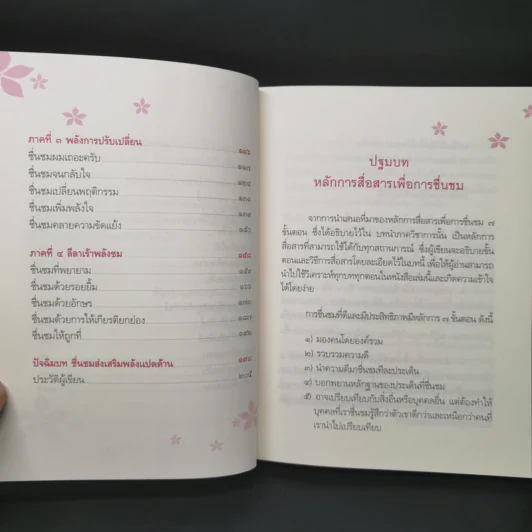 ภาคที่ ๓ พลังการปรับเปลี่ยน
ชื่นชมผมเถอะครับ
ชื่นชมจนกลับใจ
ชื่นชมเปลี่ยนพฤติกรรม
ชื่นชมเพิ่มพลังใจ
ชื่นชมคลายความขัดแย้ง
ภาคที่ ๔ ลีลาเร้าพลังชม
ชื่นชมที่พยายาม
ชื่นชมด้วยรอยยิ้ม
ชื่นชมด้วยอักษร
ชื่นชมด้วยการให้เกียรติยกย่อง
ชื่นชมให้ถูกที่
ปัจฉิมบท ชื่นชมส่งเสริมพลังแปดด้าน
ประวัติผู้เขียน ๒๐๕
ปฐมบท
หลักการสื่อสารเพื่อการชื่นชม
จากการนำเสนอที่มาของหลักการสื่อสารเพื่อการชื่นชม ๗
ขั้นตอน ซึ่งได้อธิบายไว้ใน บทนำภาควิชาการนั้น เป็นหลักการ
สื่อสารที่สามารถใช้ได้กับทุกสถานการณ์ ซึ่งผู้เขียนจะอธิบายขั้น
ตอนและวิธีการสื่อสารโดยละเอียดไว้ในบทนี้ เพื่อให้ผู้อ่านสามารถ
นำไปใช้วิเคราะห์ทุกบททุกตอนในหนังสือเล่มนี้และเกิดความเข้าใจ
ได้โดยง่าย
การชื่นชมที่ดีและมีประสิทธิภาพมีหลักการ ๗ ขั้นตอน ดังนี้
๑) มองคนโดยองค์รวม
๒) รวบรวมความดี
๓) นำความดีมาชื่นชมทีละประเด็น
๔) บอกพยานหลักฐานของประเด็นที่ชื่นชม
๕) อาจเปรียบเทียบกับสิ่งอื่นหรือบุคคลอื่น แต่ต้องทำให้
บุคคลที่เราชื่นชมรู้สึกว่าตัวเขาดีกว่าและเหนือกว่าคนที่
เรานำไปเปรียบเทียบ